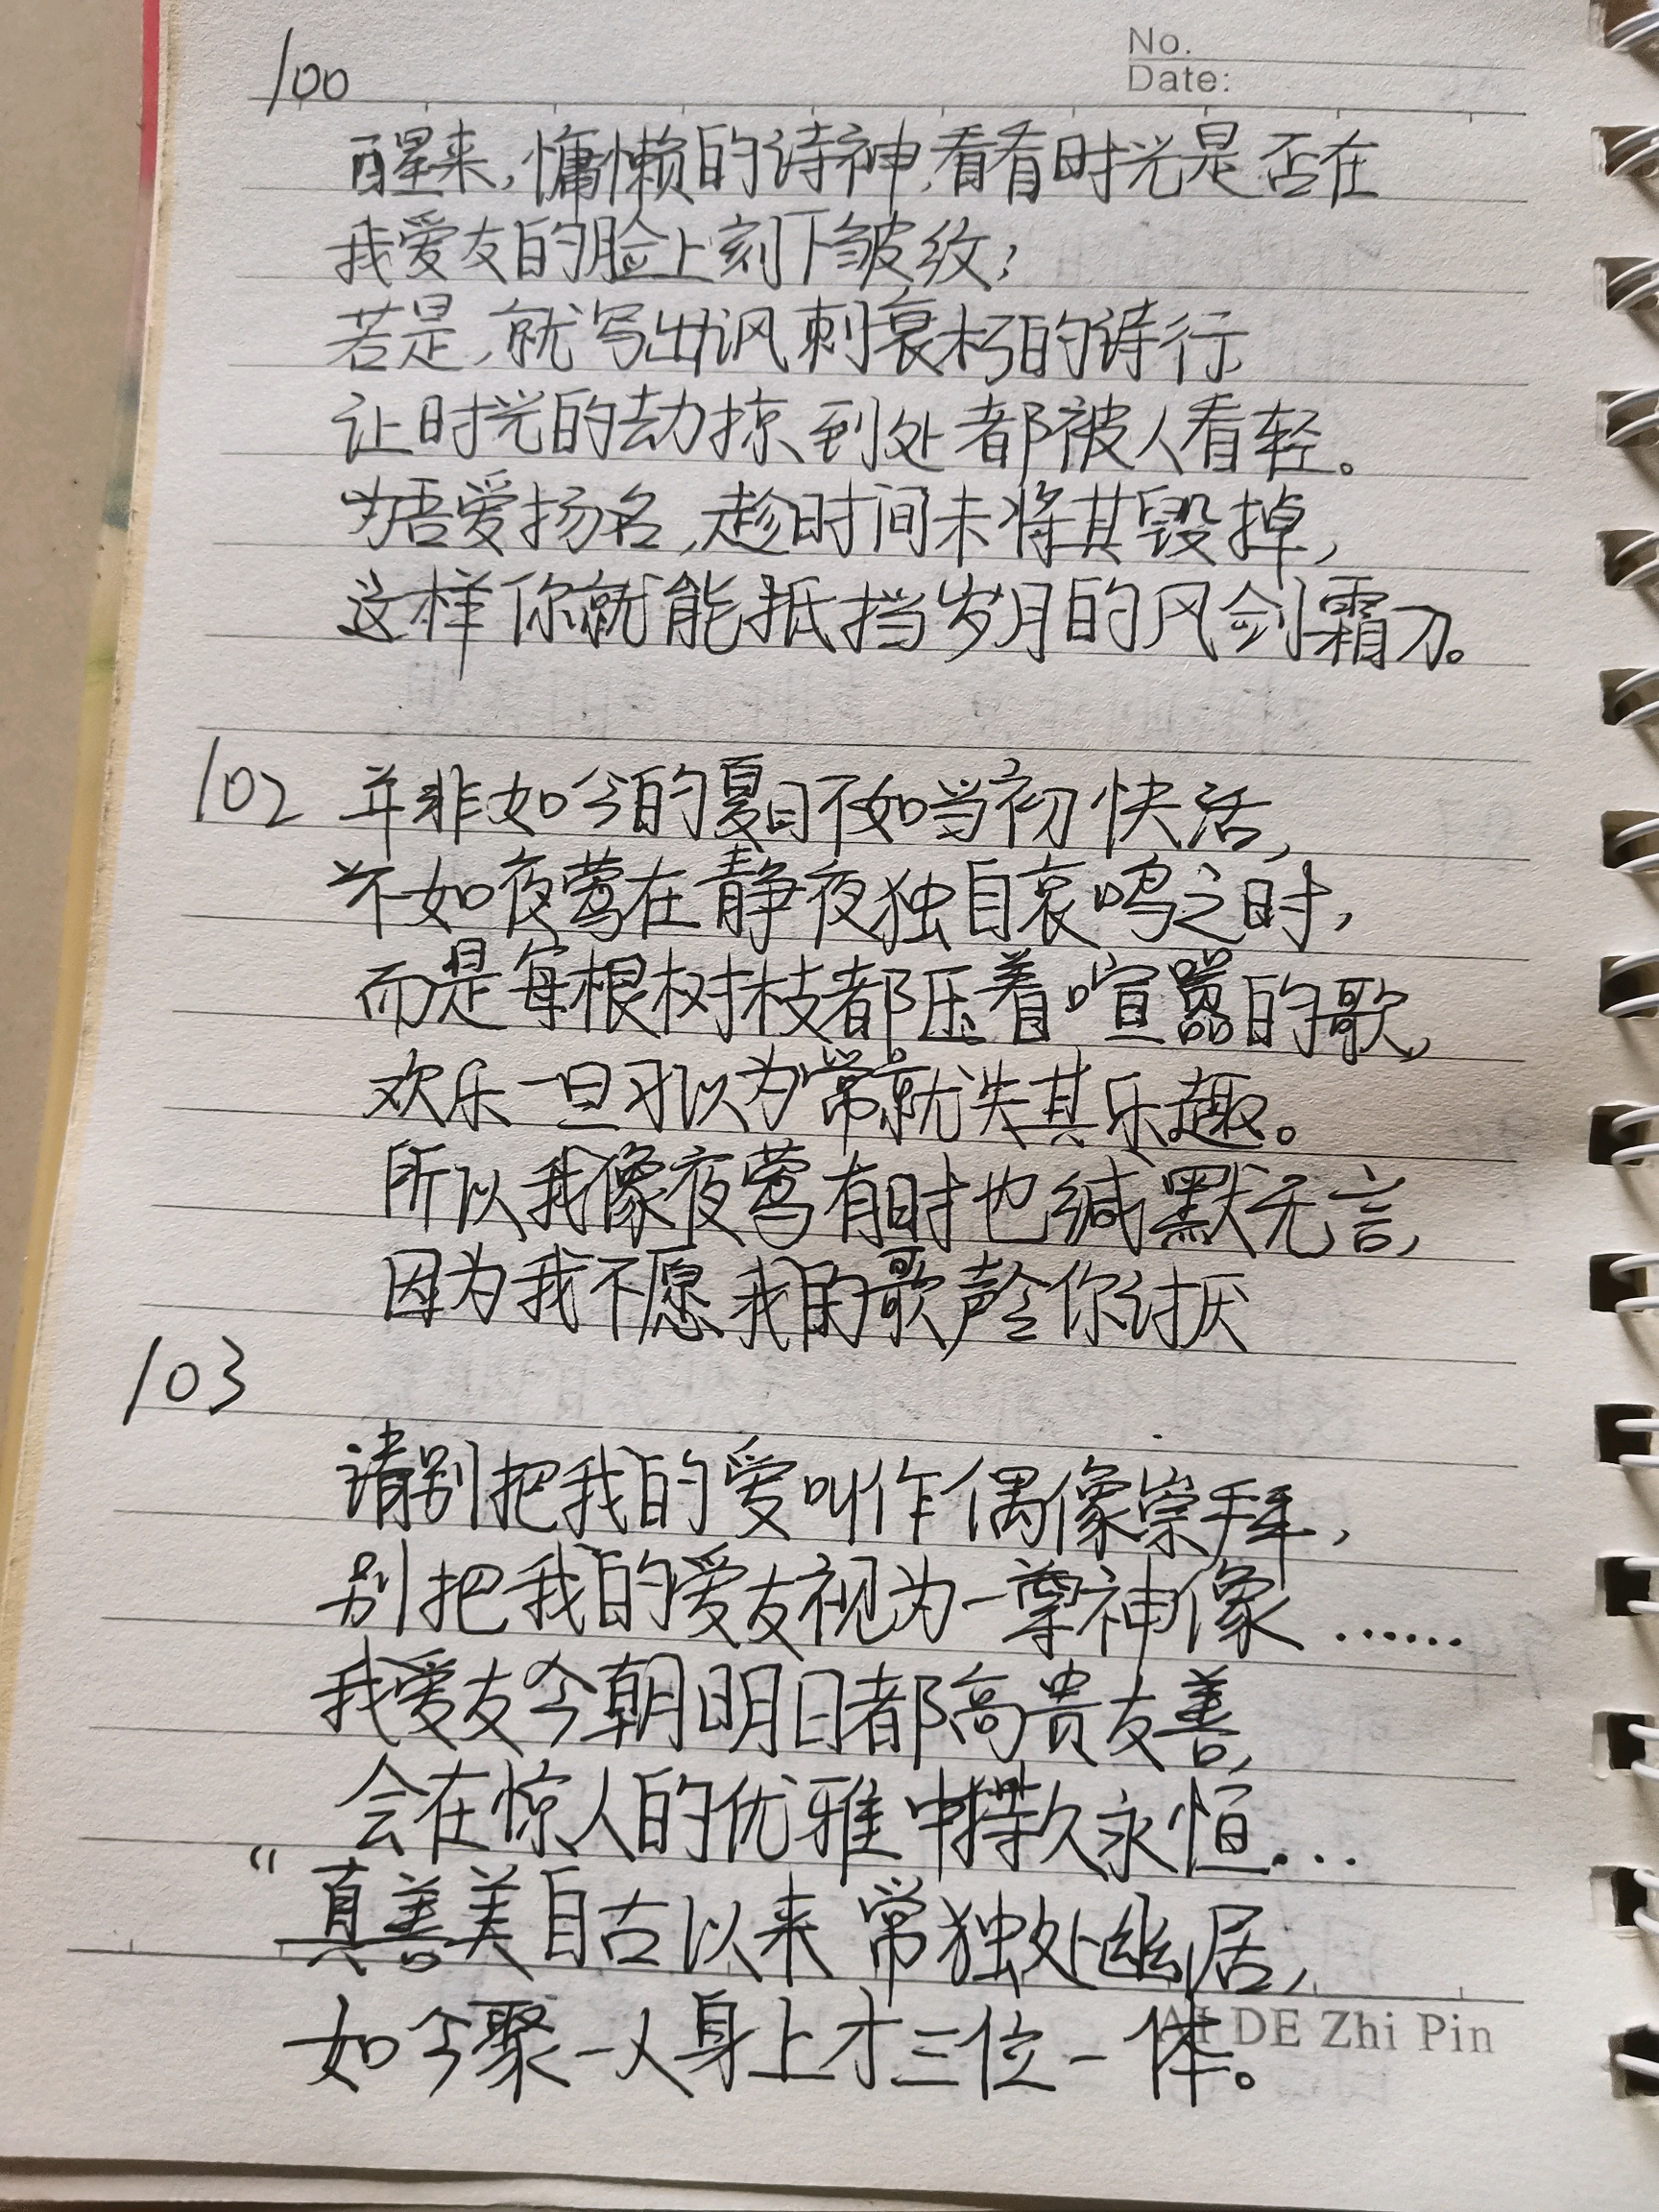 No.
Date:
100
醒来,慵懒的诗神,看看时光是否在
我爱友的脸上刻下皱纹;
若是,就写出讽刺衰朽的诗行,
让时光的劫掠到处都被人看轻。
为吾爱扬名,趁时间未将其毁掉,
这样你就能抵挡岁月的风剑霜刀。
102 并非如今的夏日不如当初快活,
不如夜莺在静夜独自哀鸣之时,
而是每根树枝都压着喧嚣的歌,
欢乐一旦习以为常就失其乐趣。
所以我像夜莺有时也缄默无言,
因为我不愿我的歌声令你讨厌
103
请别把我的爱叫作偶像崇拜,
别把我的爱友视为一尊神像……
我爱友今朝明日都高贵友善,
会在惊人的优雅中持久永恒...
“真善美自古以来常独处幽居,
如今聚一人身上才三位一体。
DE Zhi Pin